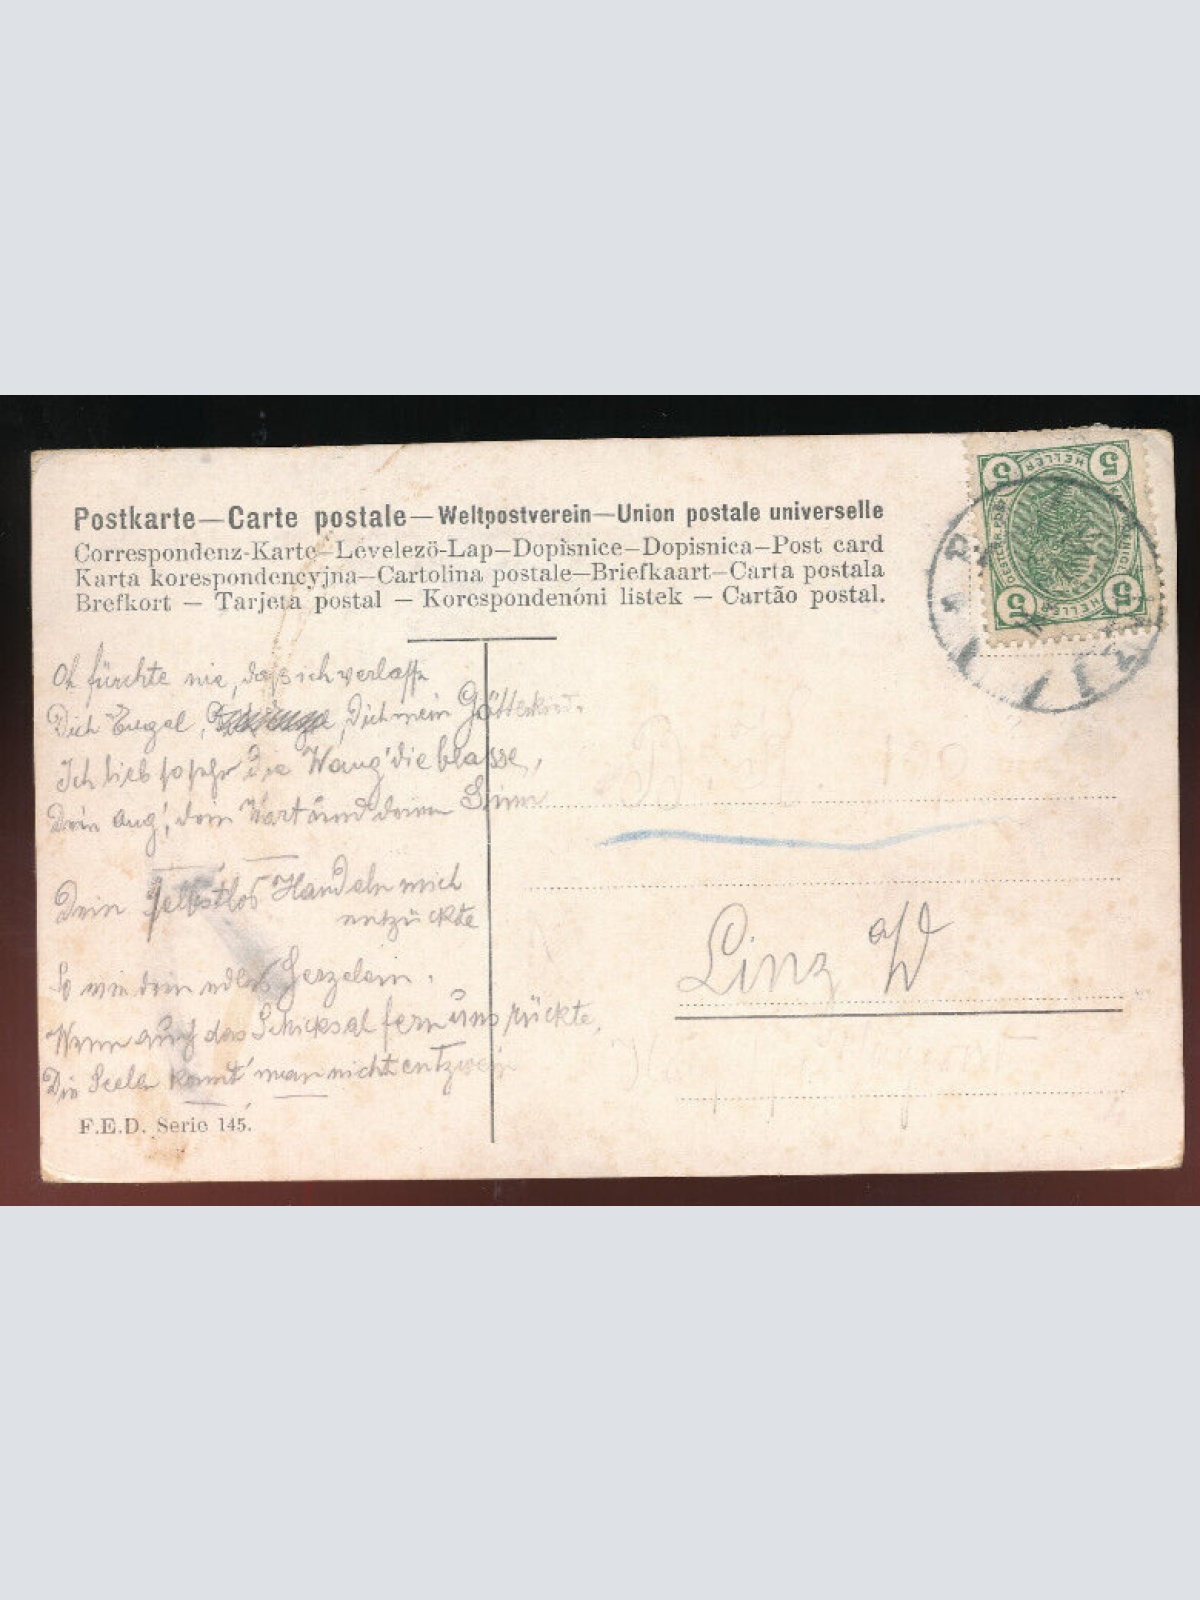 Postkarte—Carte postale—Weltpostverein—Union postale universelle
Correspondenz-Karte—Levelezö-Lap—Dopisnice—Dopisnica—Post card
Karta korespondencyjna—Cartolina postale—Briefkaart—Carta postala
Brefkort — Tarjeta postal — Korespondenóni listek — Cartão postal.
5 HELLER 5
5 HELLER 5
Oh fürchte nie, daß ich verlasse
Dich Engel, Dich mein Götterkind.
Ich lieb so sehr die Wang' die blasse,
Dein Aug', dein Wort und deinen Sinn
Dein selbstlos Handeln mich
entzückte
So wie dein edles Herzelein.
Wenn auch das Schicksal fern uns rückte,
Die Seelen könnt' man nicht entzwein
Linz a/D
F.E.D. Serie 145.